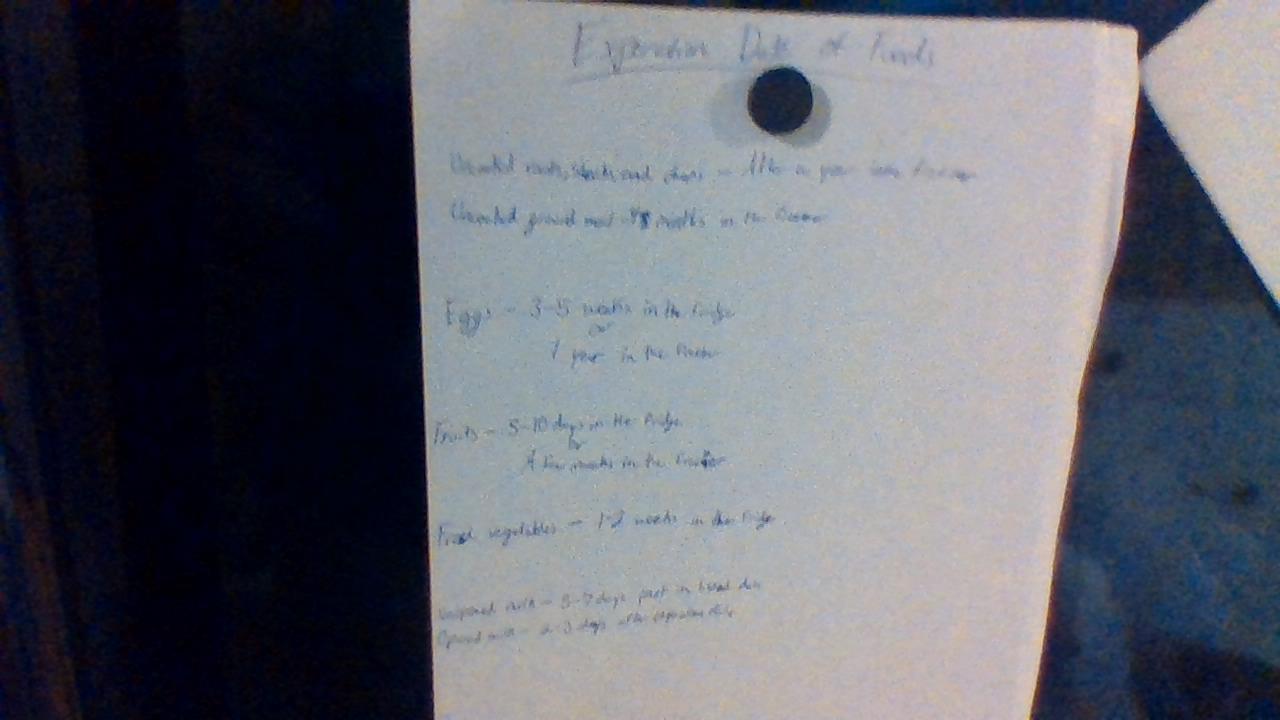 Expiration Date of Foods
Uncooked roasts, steaks, and chops - After a year in the freezer
Uncooked ground meat - months in the freezer
Eggs - 3-5 weeks in the fridge
or
1 year in the freezer
Fruits - 5-10 days in the fridge
or
A few months in the freezer
Fresh vegetables - 1-2 weeks in the fridge
Unopened milk - 5-7 days past
Opened milk - 2-3 days after